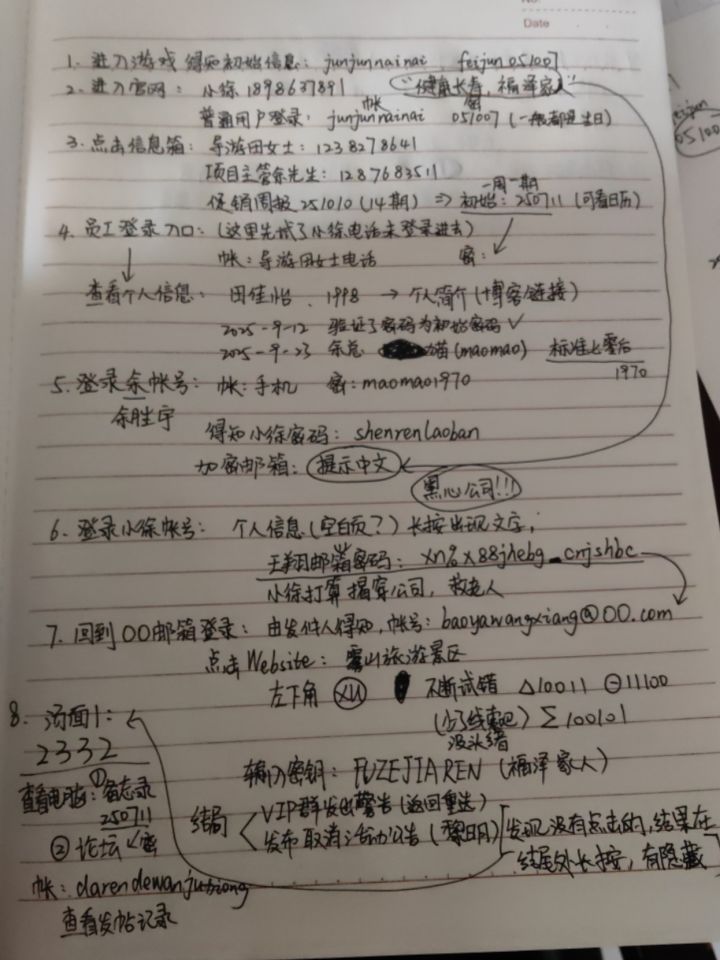 No:
Date
1. 进入游戏 得知初始信息: junjunnainai feijun051007
2. 进入官网: 小徐 1898637891 "健康长寿, 福泽家人"
帐 密
普通用户登录: junjunnainai 051007 (一般都是生日)
3. 点击信息箱: 导游田女士: 1238278641
项目主管余先生: 1287683511
一周一期
促销周报 251010 (14期) ⇒ 初始: 250711 (可看日历)
4. 员工登录入口: (这里先试了小徐电话未登录进去)
帐: 导游田女士电话 密:
查看个人信息: 田佳怡、1998 → 个人简介 (博客链接)
2025-9-12 验证了密码为初始密码 ✓
2025-9-23 余总 猫 (maomao) 标准七零后
1970
5. 登录余帐号: 帐: 手机 密: maomao1970
余胜宇
得知小徐密码: shenrenlaoban
加密邮箱: 提示中文
黑心公司!!!
6. 登录小徐帐号: 个人信息 (空白页?) 长按出现文字;
王翔邮箱密码: xn%x88jhebg_cnjshbc
小徐打算揭穿公司, 救老人
7. 回到OO邮箱登录: 由发件人得知, 帐号: baoyawangxiang@OO.com
点击Website: 雾山旅游景区
左下角 XU 不断试错 △10011 ⊖11100
(少了线索吧) Σ100101
没头绪
输入密钥: FUZEJIAREN (福泽家人)
结局 VIP群发出警告 (返回重选)
发布取消活动公告 (黎明) [发现没有点击的, 结果在
结尾外长按, 有隐藏]
8. 汤面1:
2332
查看电脑: ① 备忘录
250711
② 论坛 密
帐: darendewanjuxiong
查看发帖记录